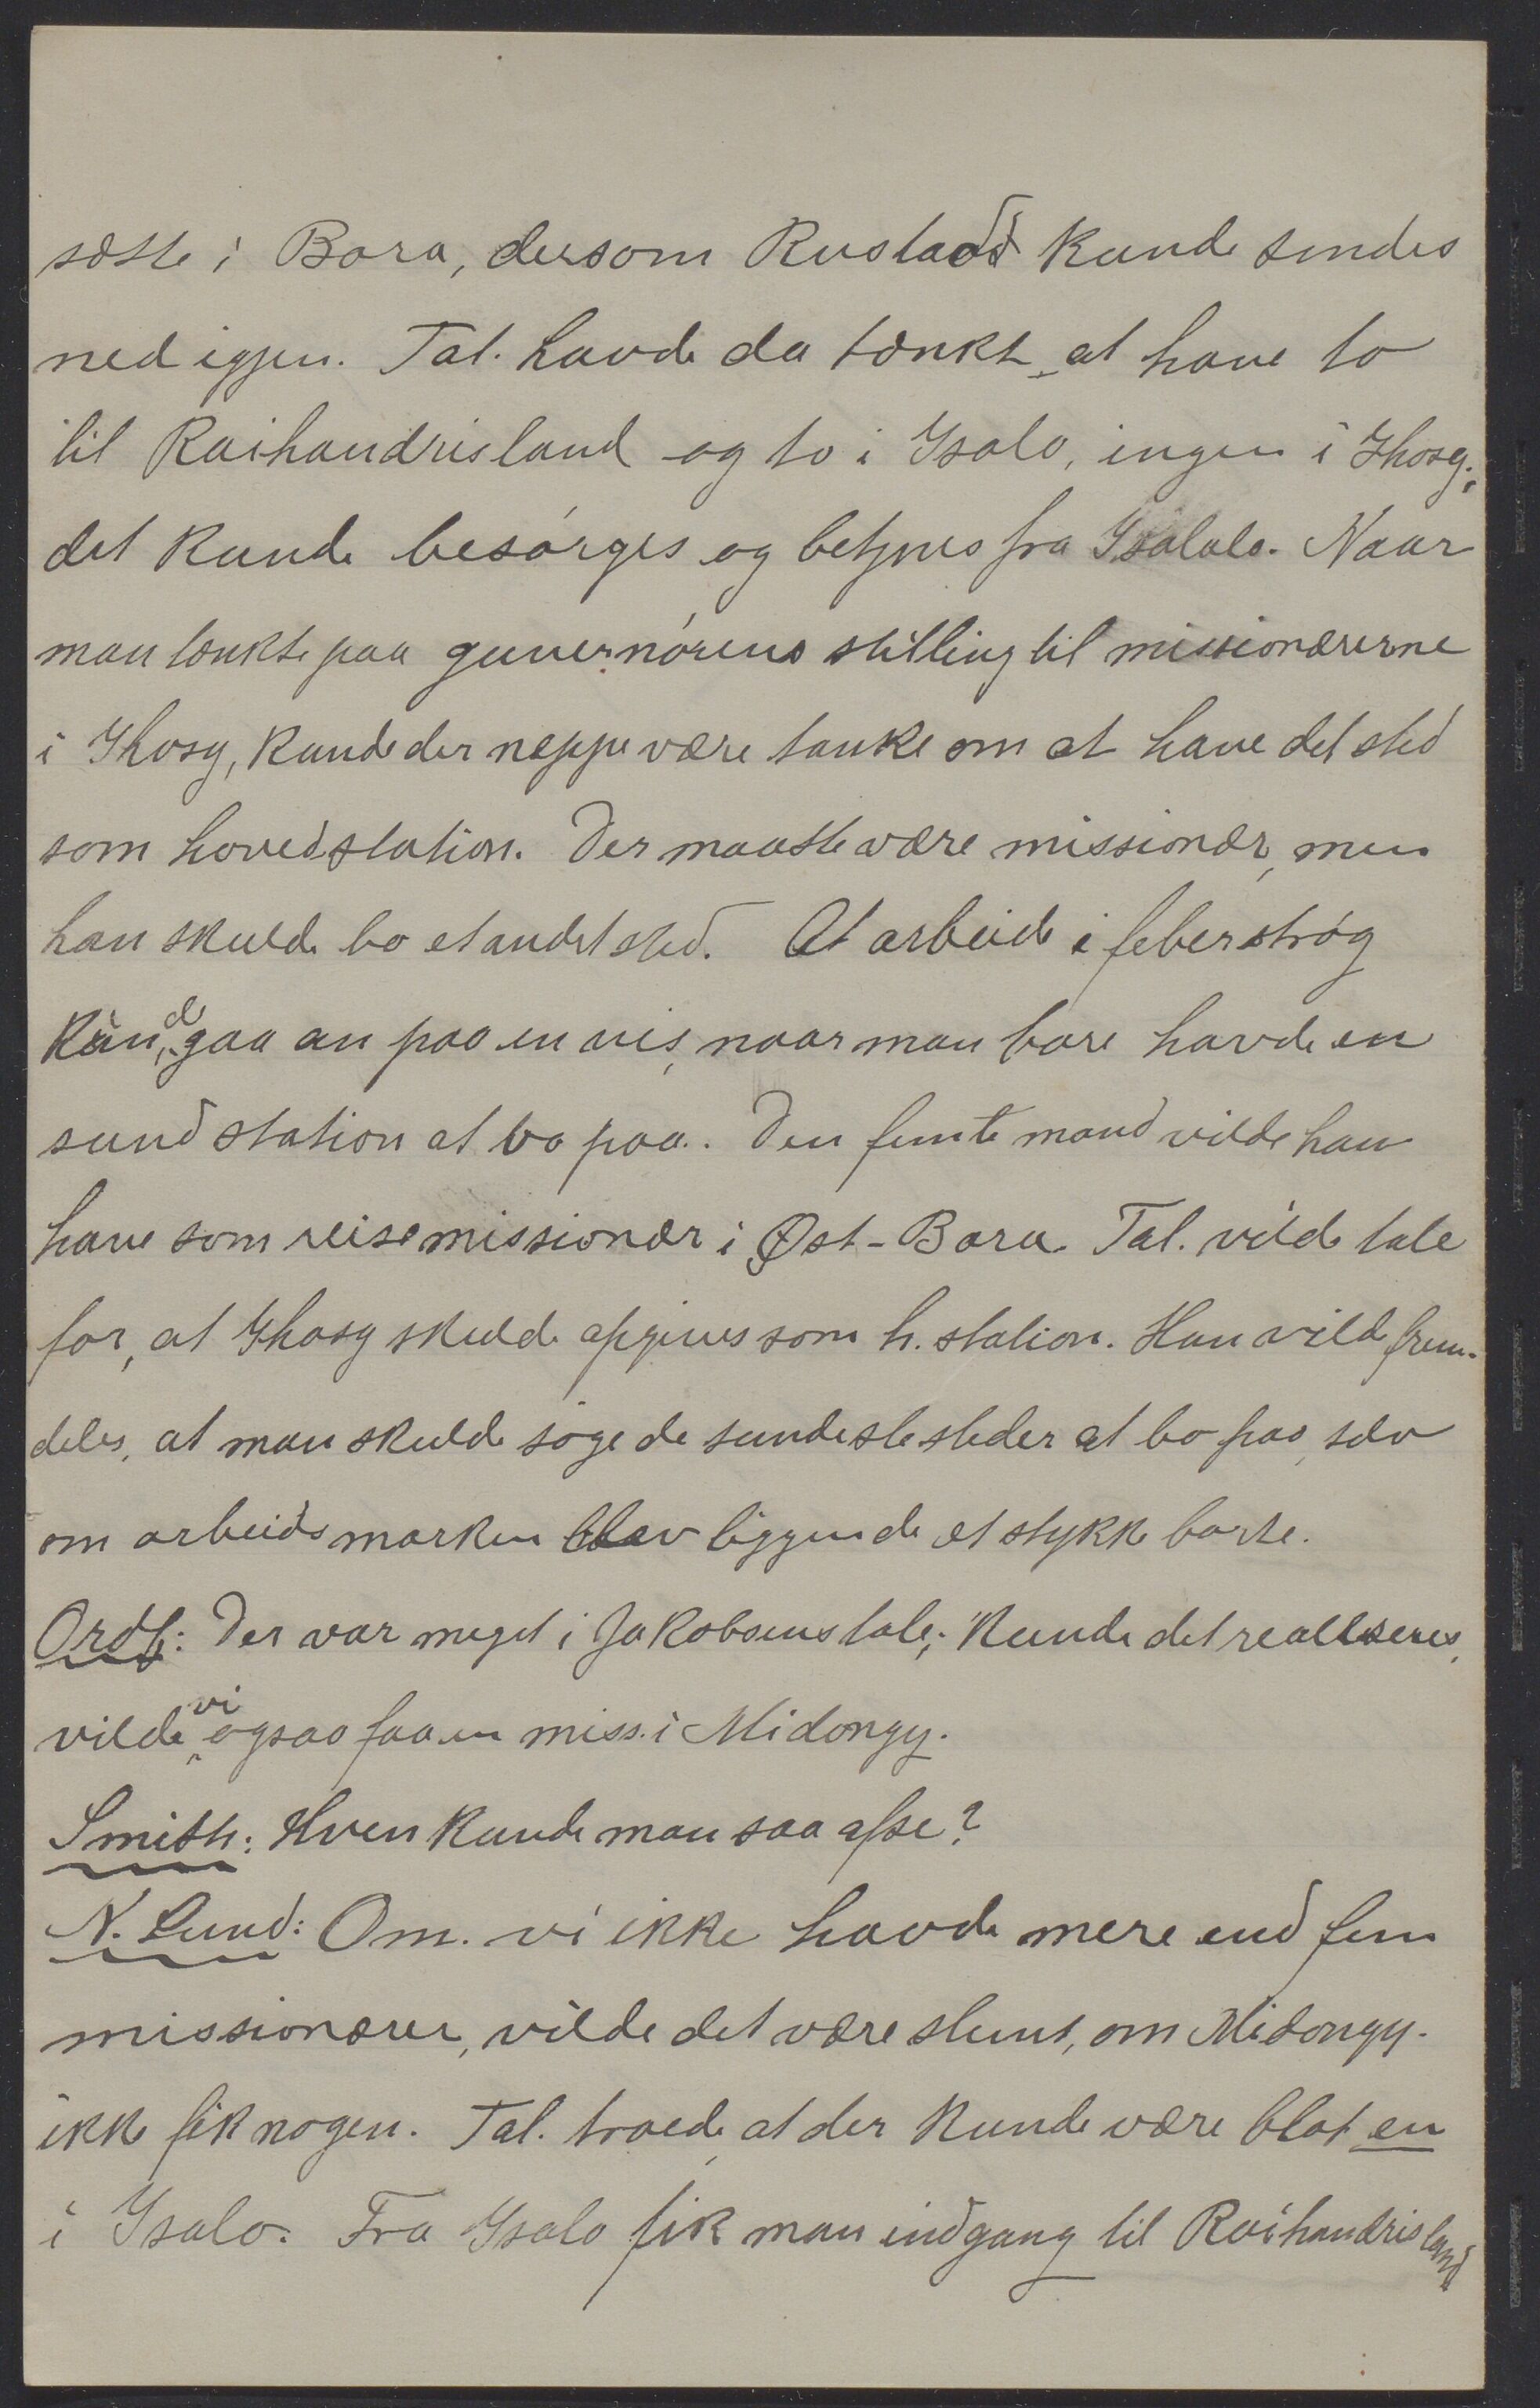 sætte i Bara, dersom Rustad kunde sendes
ned igjen. Tal. havde da tænkt at have to
til Raihandrisland og to i Isalo, ingen i Ihosy;
det kunde besørges og betjenes fra Isalalo. Naar
man tænkte paa guvernørens stilling til missionærerne
i Ihosy, kunde der neppe være tanke om at have det sted
som hovedstation. Der maatte være missionær, men
han skulde bo et andet sted. At arbeide i feberstrøg
kunde gaa an paa en vis, naar man bare havde en
sund station at bo paa. Den femte mand vilde han
have som reisemissionær i Øst-Bara. Tal. vilde tale
for, at Ihosy skulde opgives som h. station. Han vilde frem-
deles, at man skulde søge de sundeste steder at bo paa, selv
om arbeidsmarken blev liggende et stykke borte.
Ordf: Der var meget i Jakobsens tale; kunde det realiseres,
vilde vi ogsaa faa en miss. i Midongy.
Smith: Hvem kunde man saa afse?
N. Lund: Om vi ikke havde mere end fem
missionærer, vilde det være slemt, om Midongy
ikke fik nogen. Tal. troede, at der kunde være blot en
i Isalo. Fra Isalo fik man indgang til Raihandrisland